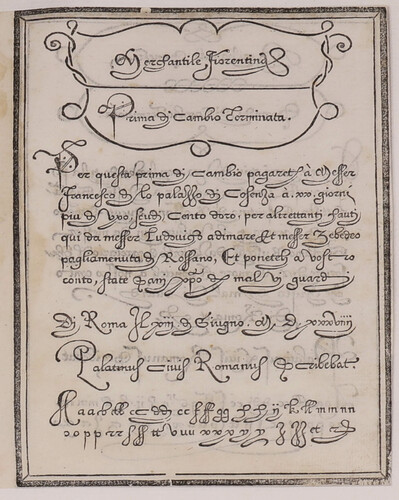 Merchantile Fiorentina
Prima di Cambio Terminata.
Per questa prima di Cambio pagareti à Messer
Francesco di lo palazzo di Cosenza à .xx. giorni
piu di uso, scudi Cento d'oro, per altrettanti hauti
qui da messer Ludovico adimare, et messer Zebedeo
pagliamenuta di Rossano, Et poneteli a vostro
conto, state Sani, xp̄o di mal vi guardi
Di Roma Il xiij di Giugno. M. D. xxxviiij
Palatinus Civis Romanus Scribebat.
A a a b c d
o o p p r r et